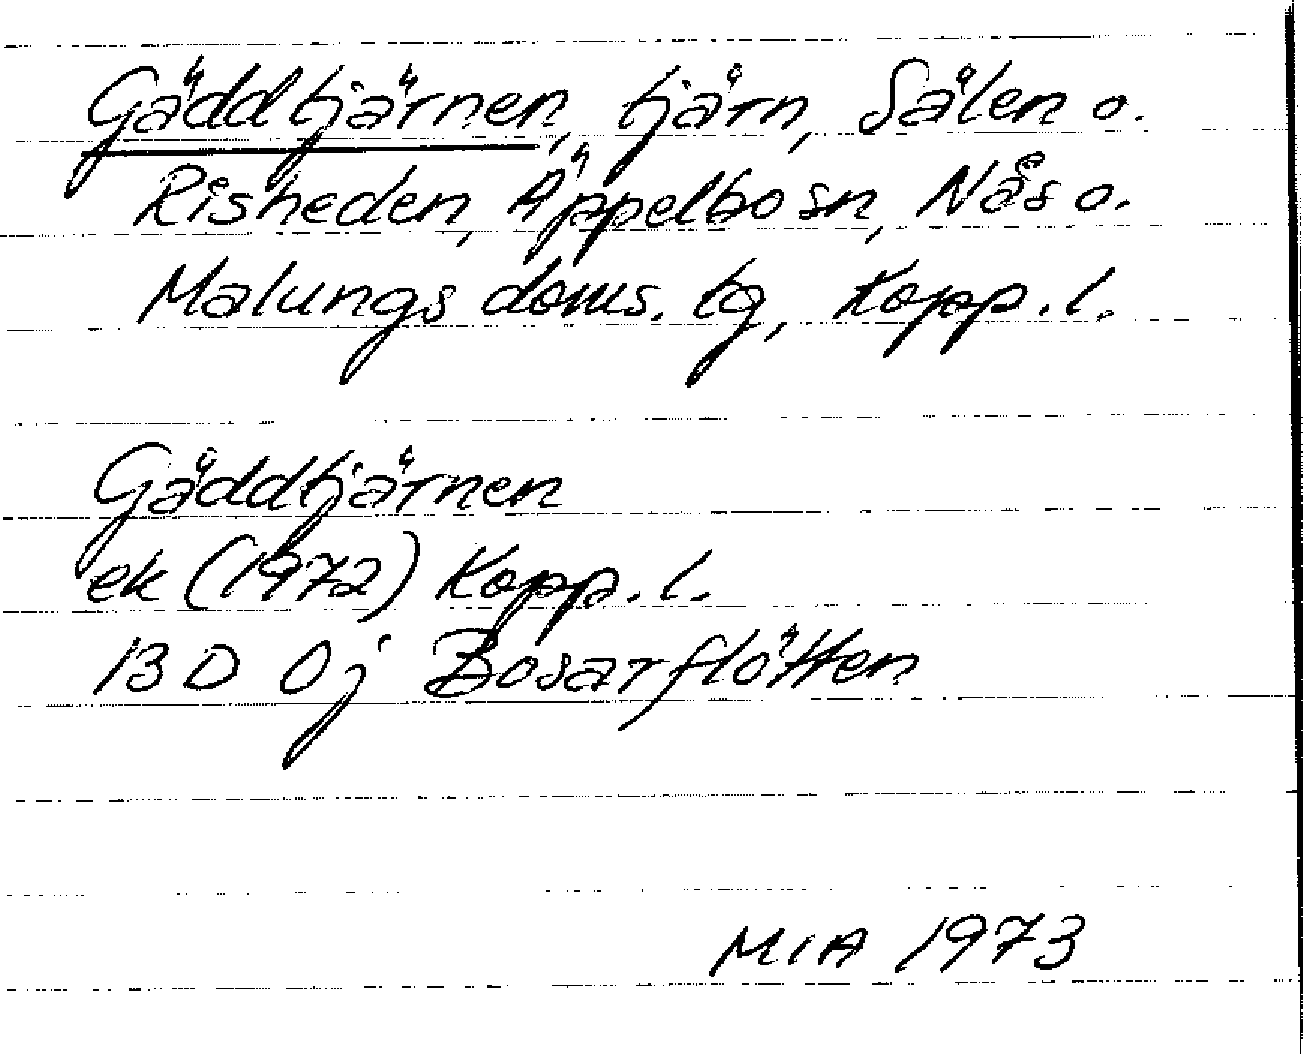 Gäddtjärnen, tjärn, Sälen o.
Risheden, Äppelbo sn, Nås o.
Malungs doms. tg, Kopp. l.
Gäddtjärnen
ek (1972) Kopp. l.
13 D 0j Bosarflötten
MIA 1973